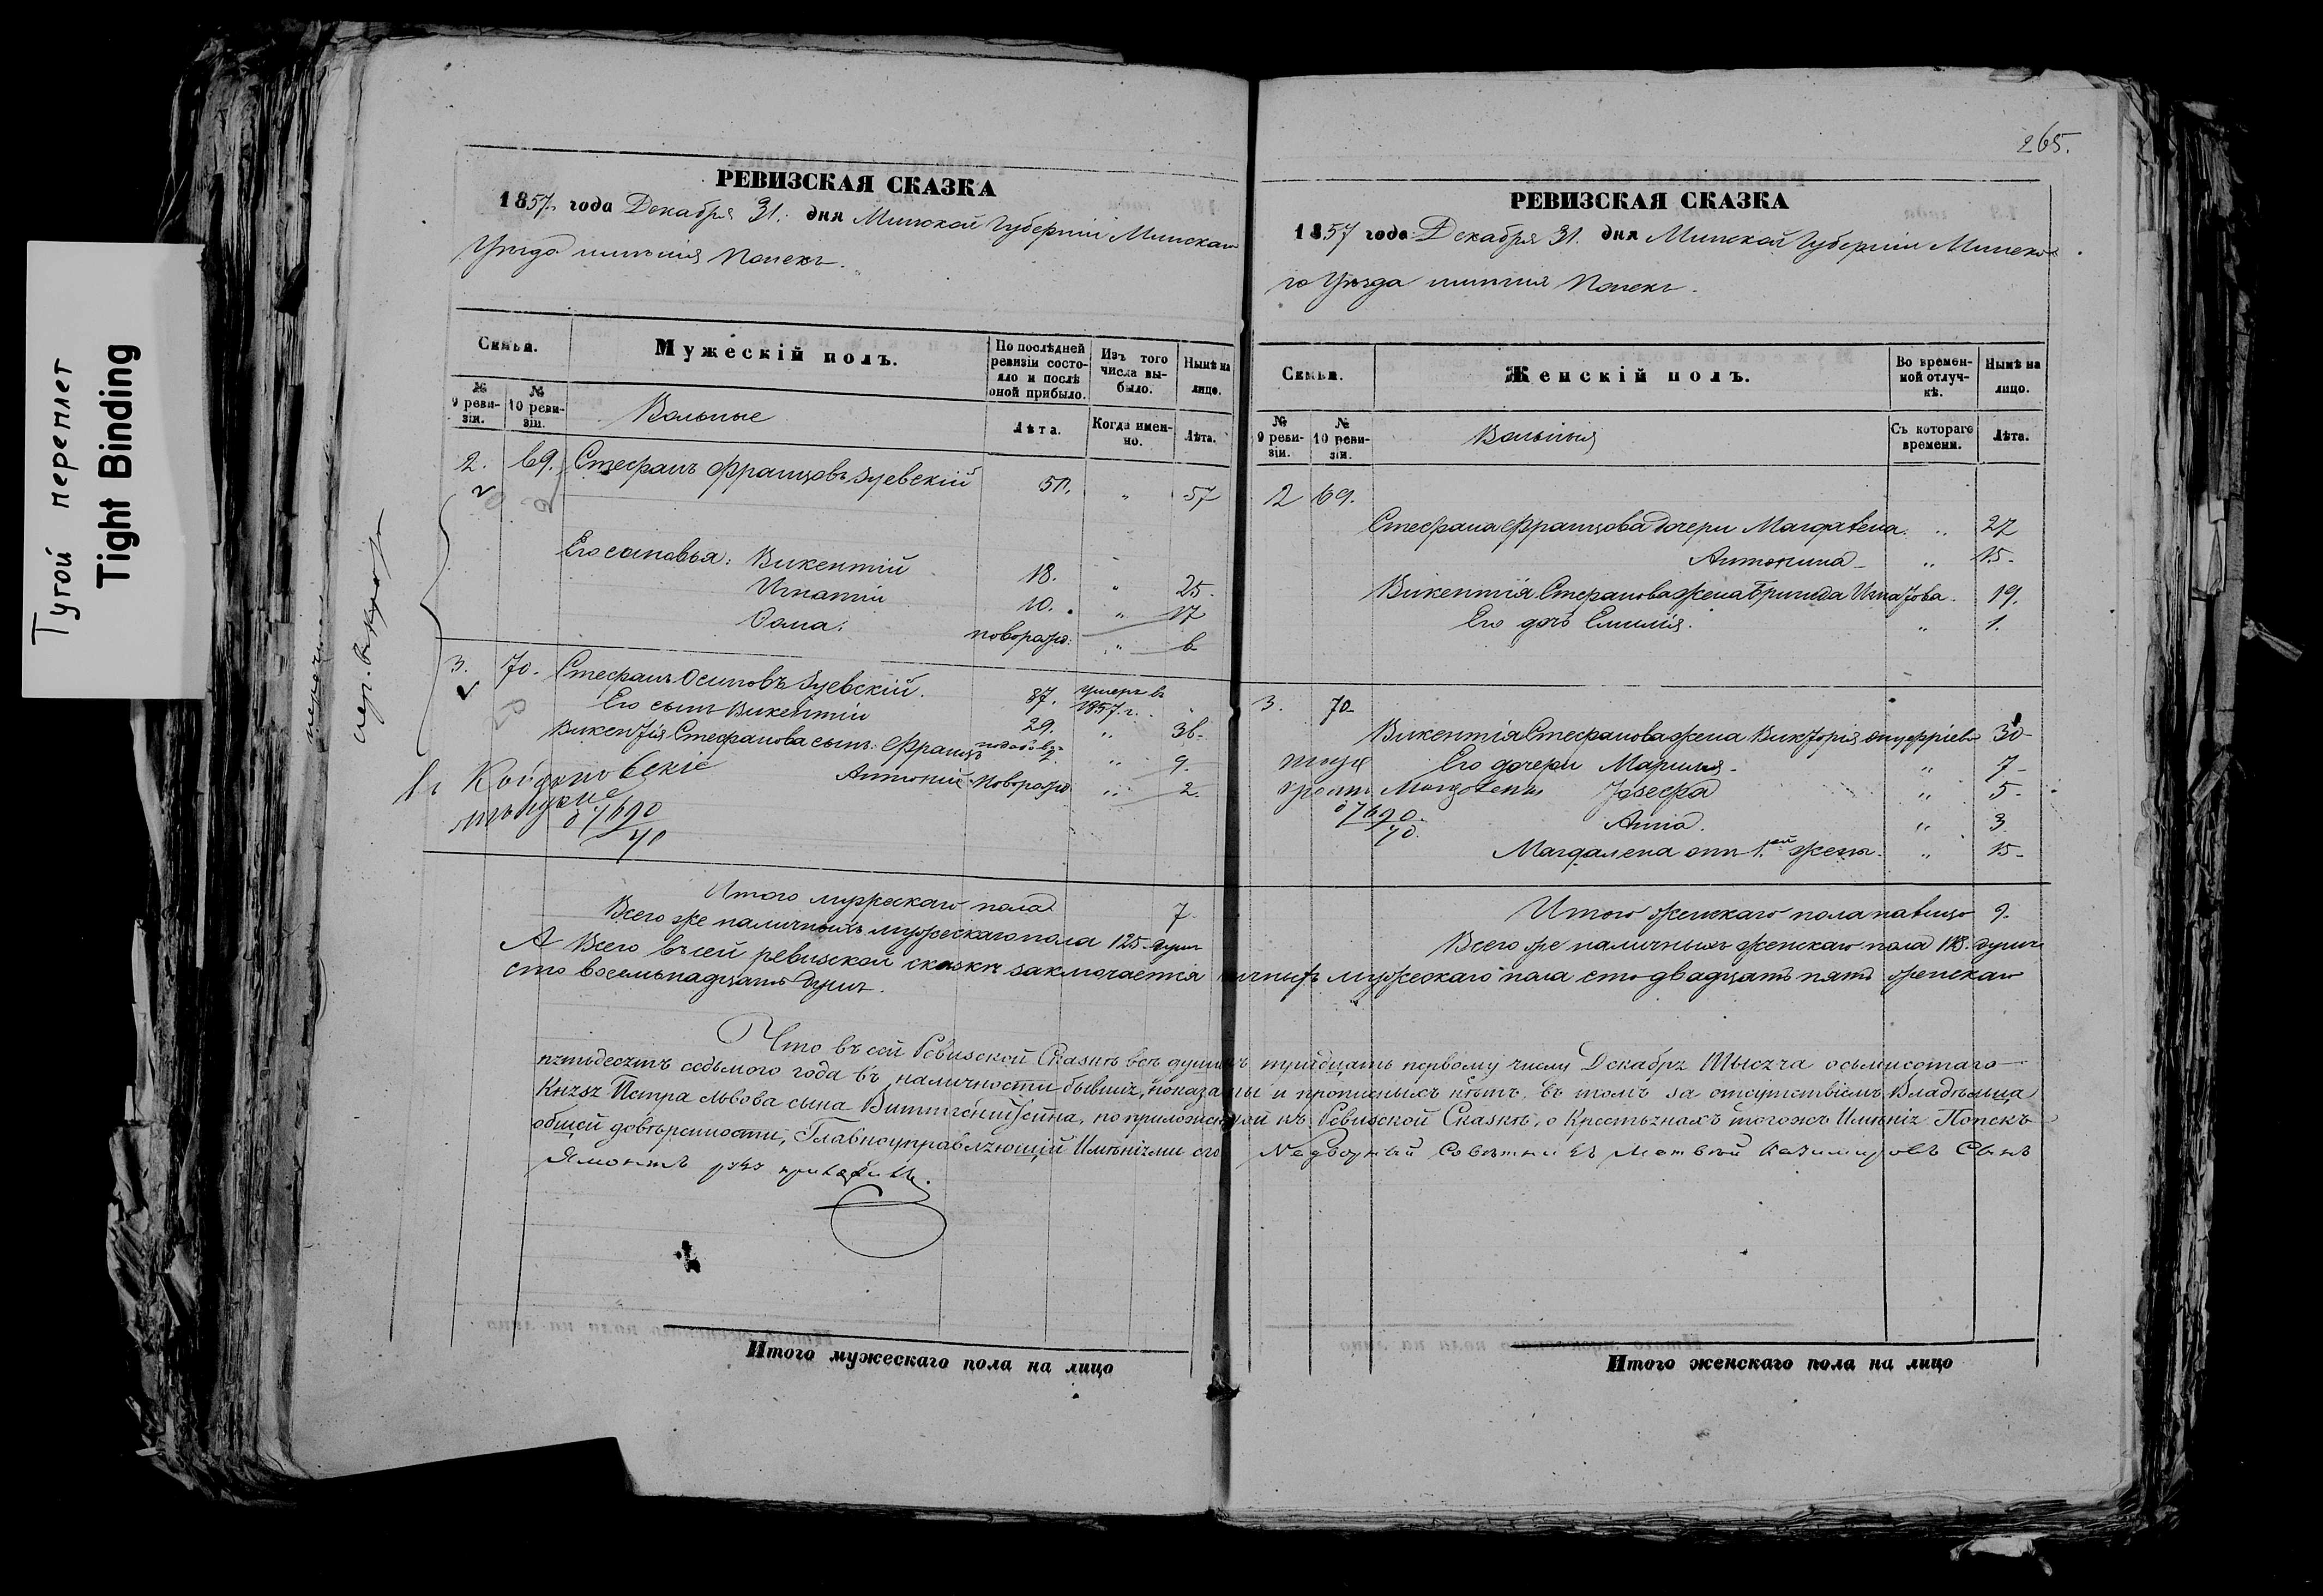 Тугой переплет
Tight Binding
РЕВИЗСКАЯ СКАЗКА
1857 года Декабря 31. дня Минской Губерніи Минскаго
Уѣзда имѣнія Попекъ.
Семьи.
Мужескій полъ.
По послѣдней ревизіи состояло и послѣ оной прибыло.
Изъ того числа выбыло.
Нынѣ на лицо.
№ 9 ревизіи.
№ 10 ревизіи.
Вольные
Лѣта.
Когда именно.
Лѣта.
2. 69. Стефанъ Францовъ Зуевскій 50. " 57
Его сыновья: Викентій 18. " 25.
Игнатій 10. " 17
Фома. новорожд. " 6
3. 70. Стефанъ Осиповъ Зуевскій. 87. умеръ въ 1857. г.
Его сынъ Викентій 29. " 36.
Викентія Стефанова сынъ: Францъ 2. " 9.
Антоній новорожд. " 2.
Итого мужескаго пола 7.
Всего же наличныхъ мужескаго пола 125. душъ
265.
РЕВИЗСКАЯ СКАЗКА
1857 года Декабря 31. дня Минской Губерніи Минска
го Уѣзда имѣнія Попекъ.
Семьи.
Женскій полъ.
Во временной отлучкѣ.
Нынѣ на лицо.
№ 9 ревизіи.
№ 10 ревизіи.
Вольныя
Съ котораго времени.
Лѣта.
2 69.
Стефана Францова дочери Магдалена " 27
Антонина " 15.
Викентія Стефанова жена Бригида Игнатова. 19.
Его дочь Емилія. " 1.
3. 70.
Викентія Стефанова жена Викторія Онуфріева 30
Его дочери Марыля " 7
Іозефа " 5.
Анна. " 3
Магдалена отъ 1.ой жены. " 15
Итого женскаго пола налицо 9.
Всего же наличныхъ женскаго пола 118. душъ
А Всего въ сей ревизской сказкѣ заключается мужескаго пола сто двадцать пять женскаго
сто восемьнадцать душъ.
Что въ сей Ревизской Сказкѣ всѣ души къ тридцать первому числу Декабря тысяча осьмисотаго
пятьдесятъ седьмого года въ наличности бывшія, показаны и прописныхъ нѣтъ, въ томъ за отсутствіемъ Владѣльца
Князя Петра Львова сына Витгенштейна, по приложенной къ Ревизской Сказкѣ, о Крестьянахъ тогожъ Имѣнія Попекъ
общей довѣренности, Главноуправляющій Имѣніями его Надворный Совѣтникъ Матвей Казимировъ Сынъ
Ямонтъ руку приложилъ.
Итого мужескаго пола на лицо
Итого женскаго пола на лицо